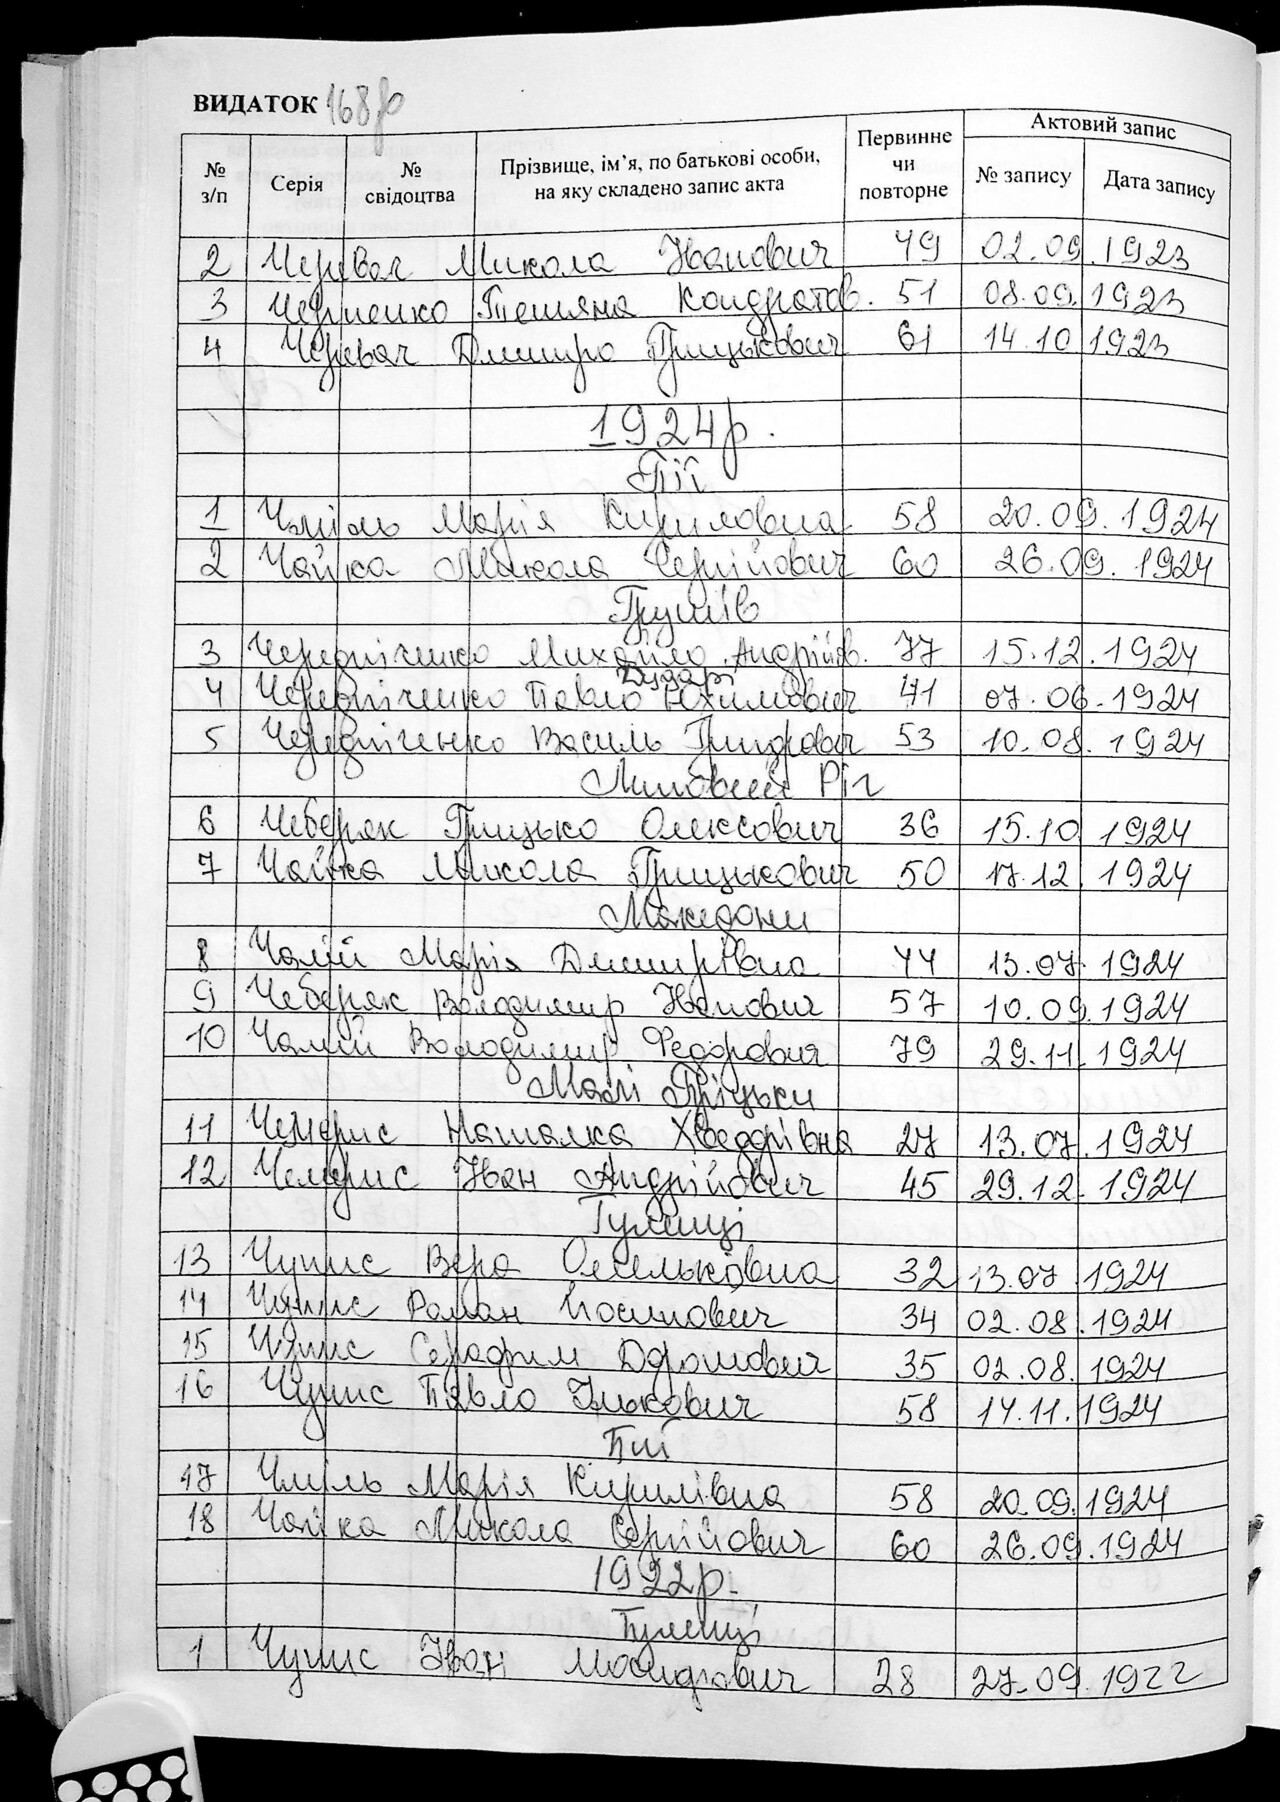 ВИДАТОК 168
Актовий запис
№ з/п Серія № свідоцтва Прізвище, ім’я, по батькові особи, на яку складено запис акта Первинне чи повторне № запису Дата запису
2 Черевач Микола Іванович 49 02.09.1923
3 Черненко Тетяна Кондратов. 51 08.09.1923
4 Черевач Дмитро Грицькович 61 14.10 1923
1924р.
Пії
1 Чміль Марія Кириловна 58 20.09.1924
2 Чайка Микола Сергійович 60 26.09.1924
Грушів
3 Чередніченко Михайло Андрійов. 77 15.12.1924
Дударі
4 Чередніченко Павло Юхимович 41 07.06.1924
5 Чередніченко Василь Григорович 53 10.08.1924
Липовий Ріг
6 Чеберяк Грицько Олексович 36 15.10 1924
7 Чайка Микола Грицькович 50 17.12 1924
Македони
8 Чалий Марія Дмитрівна 44 13.07.1924
9 Чеберяк Володимир Іванович 57 10.09.1924
10 Чалий Володимир Федорович 79 29.11.1924
Малі Пріцьки
11 Чемерис Наталка Хведорівна 27 13.07.1924
12 Чемерис Іван Андрійович 45 29.12.1924
Тулинці
13 Чупис Вера Омельковна 32 13.07 1924
14 Чупис Роман Йосипович 34 02.08.1924
15 Чупис Серафим 35 02.08.1924
16 Чупис Павло Ількович 58 14.11.1924
Пії
17 Чміль Марія Кирилівна 58 20.09.1924
18 Чайка Микола Сергійович 60 26.09.1924
1922р.
Тулинці
1 Чупис Іван 28 27.09.1922